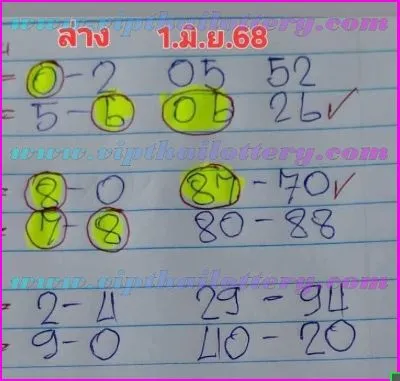 ล่าง 1.มิ.ย.68
www.vipthailottery.com
= 0-2 05 52
= 5-6 06 26✓
www.vipthailottery.com
= 8-0 87-70✓
= 7-8 80-88
www.vipthailottery.com
= 2-4 29-94
= 9-0 40-20